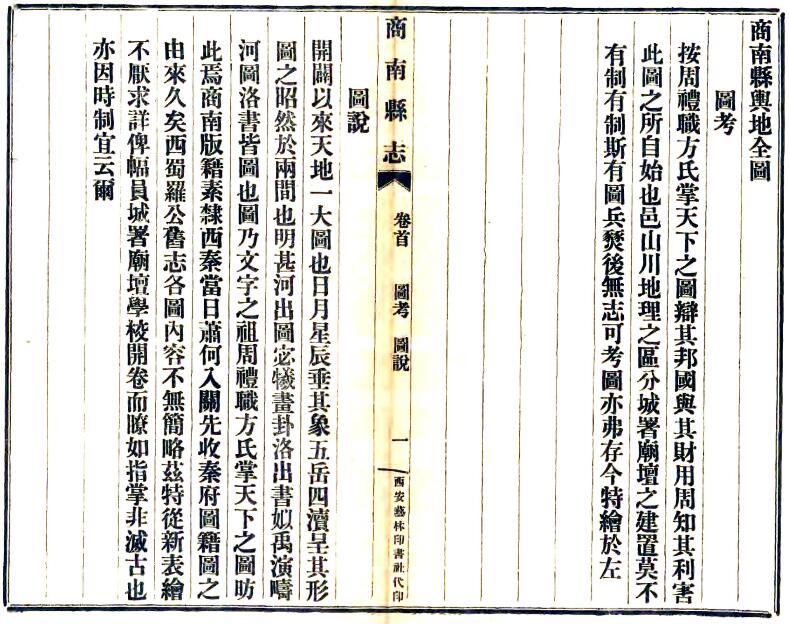 商南縣輿地全圖
圖考
按周禮職方氏掌天下之圖辯其邦國與其財用周知其利害
此圖之所自始也邑山川地理之區分城署廟壇之建置莫不
有制有制斯有圖兵燹後無志可考圖亦弗存今特繪於左
商南縣志
卷首
圖考
圖說
一
西安藝林印書社代印
圖說
開闢以來天地一大圖也日月星辰垂其象五岳四瀆呈其形
圖之昭然於兩間也明甚河出圖宓犧畫卦洛出書姒禹演疇
河圖洛書皆圖也圖乃文字之祖周禮職方氏掌天下之圖昉
此焉商南版籍素隸西秦當日蕭何入關先收秦府圖籍圖之
由來久矣西蜀羅公舊志各圖內容不無簡略茲特從新表繪
不厭求詳俾幅員城署廟壇學校開卷而瞭如指掌非滅古也
亦因時制宜云爾